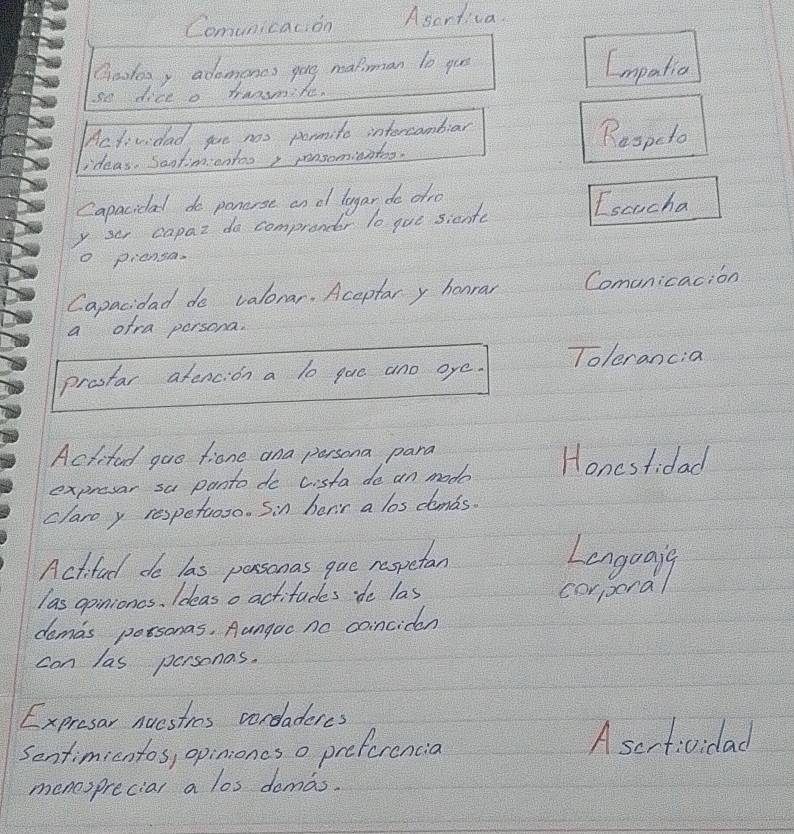 Comunicación Asertiva.
Gestos y ademanes que reafirman lo que
se dice o transmite.
Empatia
Actividad que nos permite intercambiar
ideas. Sentimientos y pensamientos.
Respeto
Capacidad de ponerse en el lugar de otro
y ser capaz de comprender lo que siente
o piensa.
Escucha
Capacidad de valorar. Aceptar y honrar
a otra persona.
Comunicación
prestar atención a lo que uno oye.
Tolerancia
Actitud que tiene una persona para
expresar su punto de vista de un modo
claro y respetuoso. Sin herir a los demás.
Honestidad
Actitud de las personas que respetan
las opiniones. Ideas o actitudes de las
demás personas. Aunque no coinciden
con las personas.
Lenguaje
corporal
Expresar nuestros verdaderes
sentimientos, opiniones o preferencia
menospreciar a los demás.
Asertividad